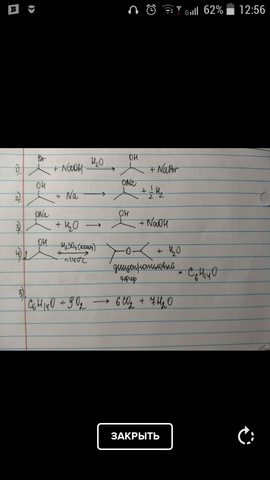 62% 12:56
Br OH
1). + NaOH H₂O → + NaBr
OH ONa
2) + Na → + ½ H₂
ONa OH
3) + H₂O → + NaOH
OH
4) 2 H₂SO₄(конц) O + H₂O
<140°C
диизопропиловый
эфир = C₆H₁₄O
5)
C₆H₁₄O + 9O₂ → 6CO₂ + 7H₂O
ЗАКРЫТЬ